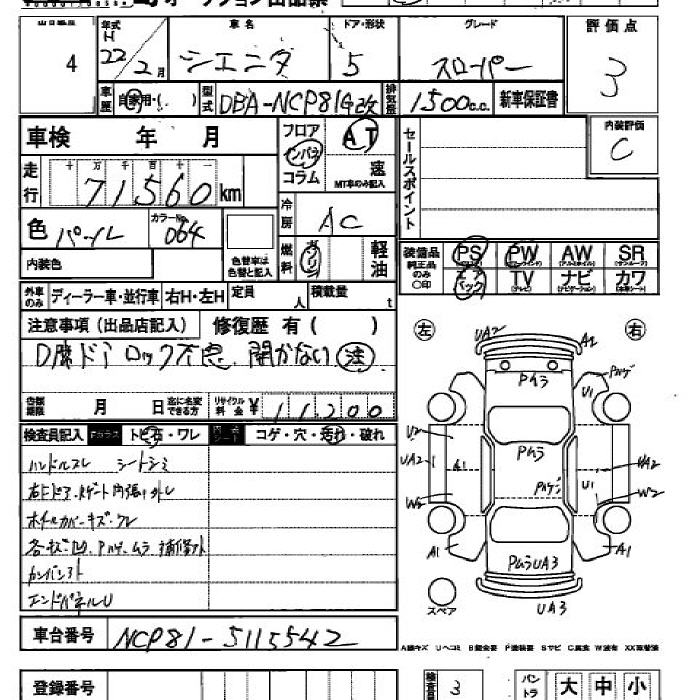 オークション出品票
出品番号 4
年式 H 22年 2月
車名 シエンタ
ドア・形状 5
グレード スローパー
評価点 3
車歴 自家用・( )
型式 DBA-NCP81G改
排気量 1500c.c.
新車保証書
車検 年 月
フロア インパネ コラム
AT
速
MT車のみ記入
セールスポイント
内装評価 C
走行 十万千百十一
71560km
冷房 AC
色 パール
カラーNo. 064
色替車は色替と記入
燃料 ガソリン 軽油
内装色
装備品 純正品のみ○印
PS PW AW SR
エアバック TV ナビ カワ
外車のみ ディーラー車・並行車 右H・左H 定員 人 積載量 t
注意事項(出品店記入) 修復歴 有( )
D席ドアロック不良、開かない 注
月 日迄に名変できる方
リサイクル料金 ¥11200
検査員記入 Fガラス トビ石・ワレ 内装シート コゲ・穴・汚れ・破れ
ハンドルスレ シートシミ
ホイルカバーキズ・ワレ
カンバンアト
エンドパネルU
左 右
UA2 A2
Pムラ
U1
U2
Pムラ
UA2 A1 UA2
U1
W2 W2
A1 PムラUA3 A1
スペア
UA3
車台番号 NCP81-5115542
A線キズ Uヘコミ
登録番号
検査員 3
大 中 小